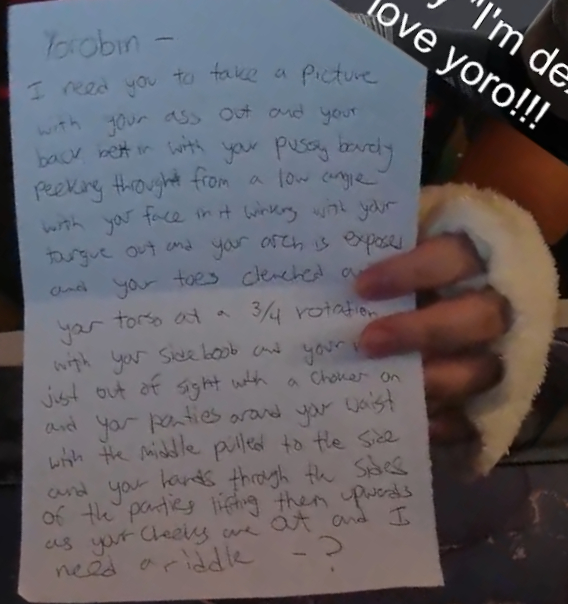 "I'm de
love yoro!!!
Yorobin -
I need you to take a picture
with your ass out and your
back bent in with your pussy barely
peeking throught from a low angle
with your face in it winking with your
tongue out and your arch is exposed
and your toes clenched
your torso at a 3/4 rotation
with your sideboob and your
just out of sight with a choker on
and your panties around your waist
with the middle pulled to the side
and your hands through the sides
of the panties lifting them upwards
as your cheeks are out and I
need a riddle - ?